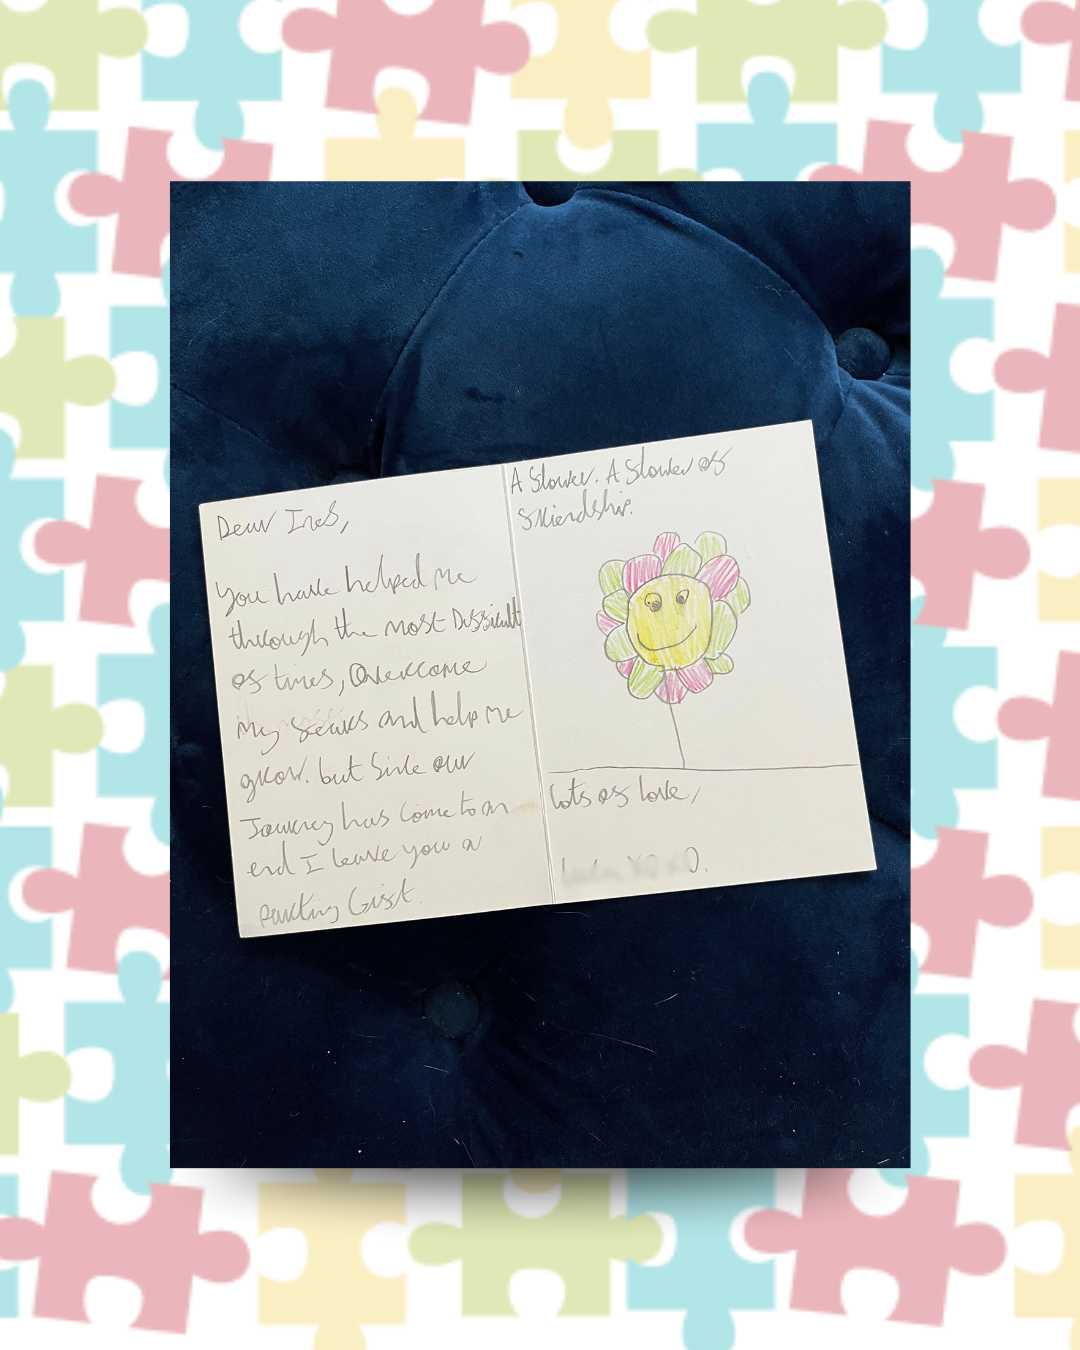 Dear Ines,
You have helped me
through the most Difficult
of times, Overcome
My fears and help me
grow. but Sinle our
Journey has come to an
end I leave you a
parting Gift.
A flower. A flower of
friendship.
lots of love,